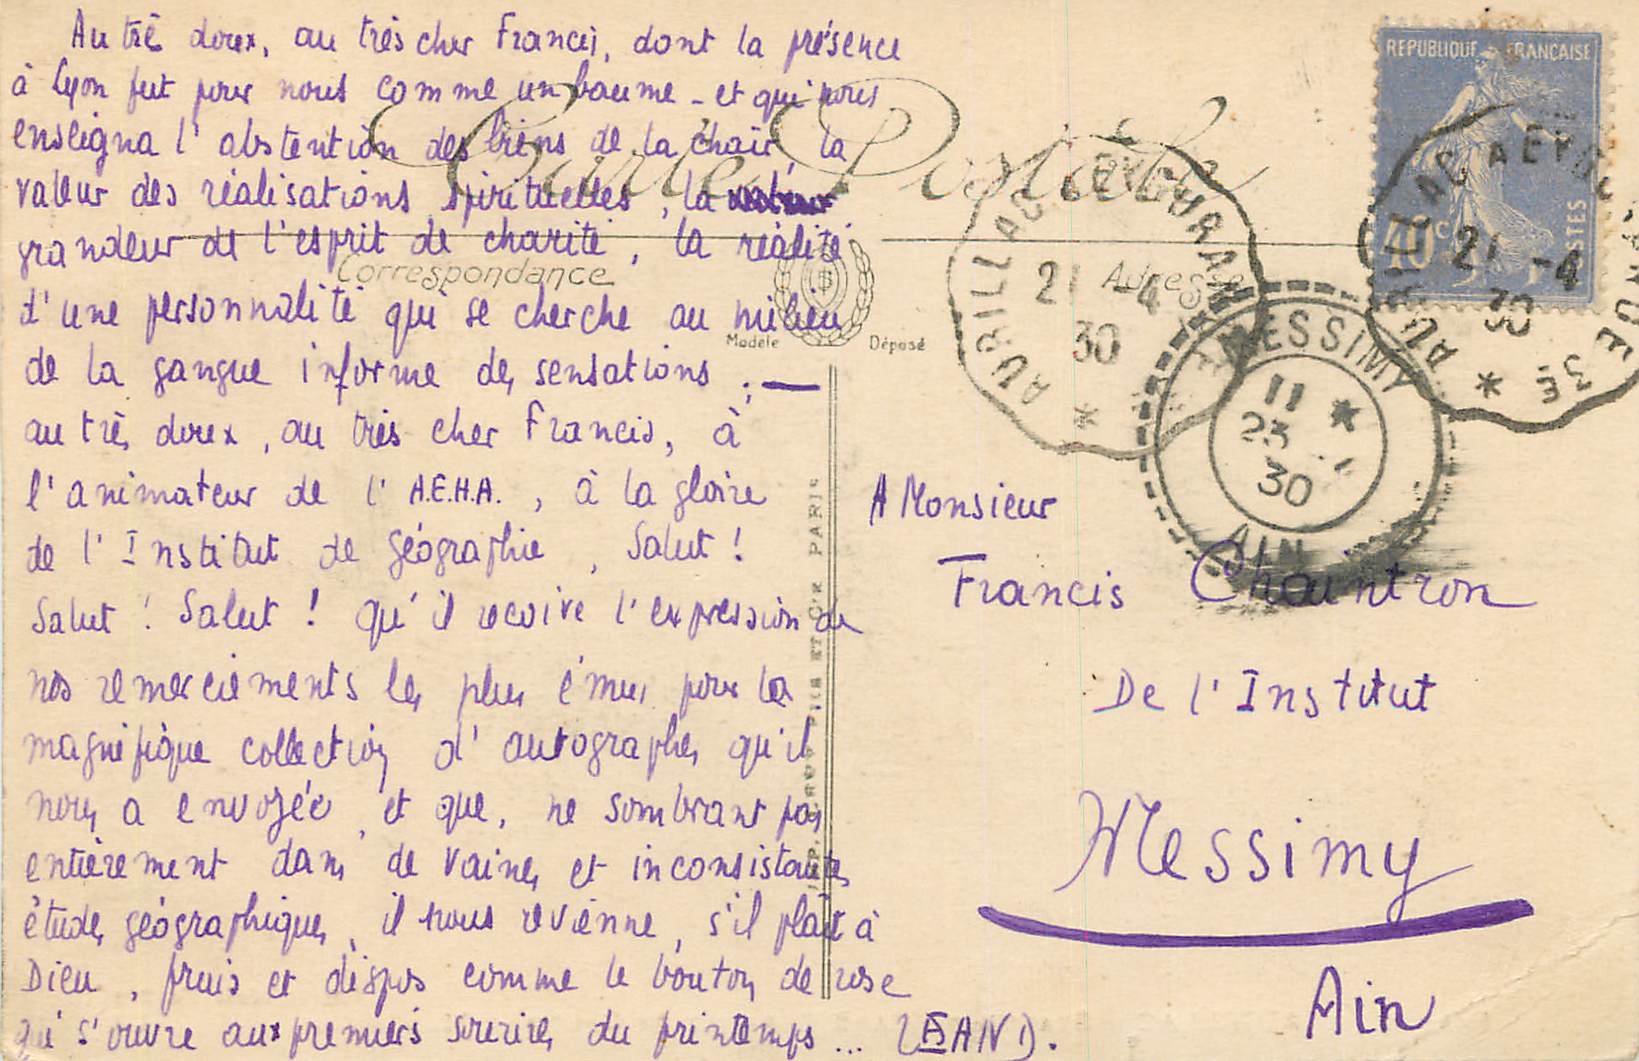 Au très doux, au très cher Francis, dont la présence
à Lyon fut pour nous comme un baume - et qui nous
enseigna l'abstention des biens de la chair, la
valeur des réalisations spirituelles, la
grandeur de l'esprit de charité, la réalité
d'une personnalité qui se cherche au milieu
de la gangue informe des sensations ; —
au très doux, au très cher Francis, à
l'animateur de l'A.E.H.A., à la gloire
de l'Institut de géographie, Salut !
Salut ! Salut ! qu'il reçoive l'expression de
nos remerciements les plus émus pour la
magnifique collection d'autographes qu'il
nous a envoyée, et que, ne sombrant pas
entièrement dans de vaines et inconsistantes
études géographiques, il nous revienne, s'il plaît à
Dieu, frais et dispos comme le bouton de rose
qui s'ouvre aux premiers sourires du printemps...
Carte Postale
Correspondance
Adresse
Modèle Déposé
PARIS
REPUBLIQUE FRANÇAISE
40c
POSTES
AURILLAC A EYGURANDE
21 -4
30
*
AURILLAC A EYGURANDE 3E
21 -4
30
*
MESSIMY
11 *
23
30
AIN
A Monsieur
Francis Chountron
De l'Institut
Messimy
Ain